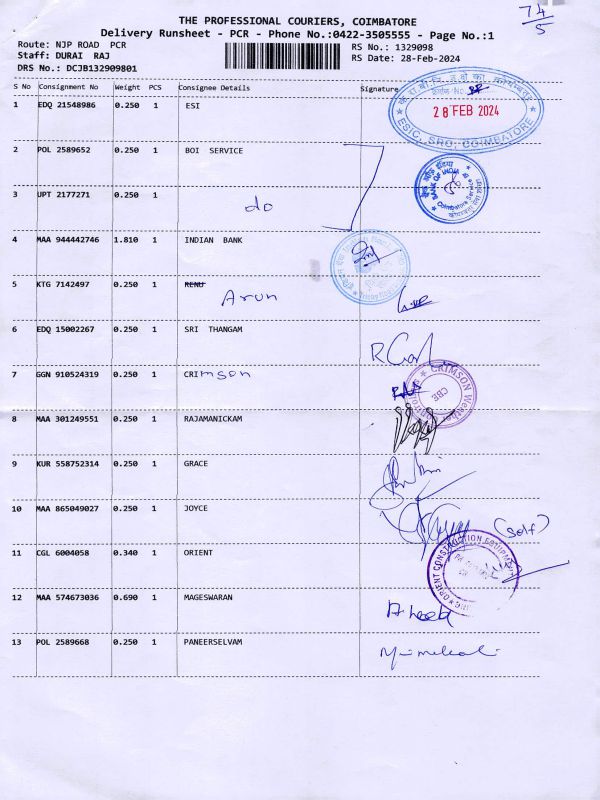 74
5
THE PROFESSIONAL COURIERS, COIMBATORE
Delivery Runsheet - PCR - Phone No.:0422-3505555 - Page No.:1
Route: NJP ROAD PCR
Staff: DURAI RAJ
DRS No.: DCJB132909801
RS No.: 1329098
RS Date: 28-Feb-2024
S No Consignment No Weight PCS Consignee Details Signature
1 EDQ 21548986 0.250 1 ESI
28 FEB 2024
ESIC, SRO, COIMBATORE
2 POL 2589652 0.250 1 BOI SERVICE
BANK OF INDIA
3 UPT 2177271 0.250 1 do
4 MAA 944442746 1.810 1 INDIAN BANK
5 KTG 7142497 0.250 1 RENU
Arun
6 EDQ 15002267 0.250 1 SRI THANGAM
7 GGN 910524319 0.250 1 CRImson
CRIMSON
CBE
8 MAA 301249551 0.250 1 RAJAMANICKAM
9 KUR 558752314 0.250 1 GRACE
10 MAA 865049027 0.250 1 JOYCE
(Self)
11 CGL 6004058 0.340 1 ORIENT
ORIENT CONSTRUCTION EQUIPMENT
12 MAA 574673036 0.690 1 MAGESWARAN
13 POL 2589668 0.250 1 PANEERSELVAM